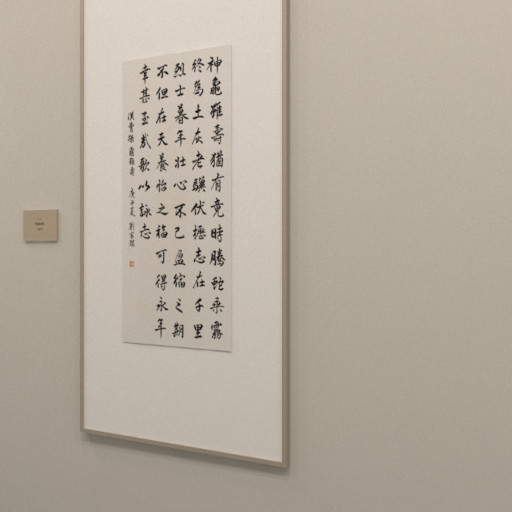 神龜雖壽猶有竟時騰蛇乘霧
終爲土灰老驥伏櫪志在千里
烈士暮年壯心不已盈縮之期
不但在天養怡之福可得永年
幸甚至哉歌以詠志
漢曹操龜雖壽 庚子夏 劉